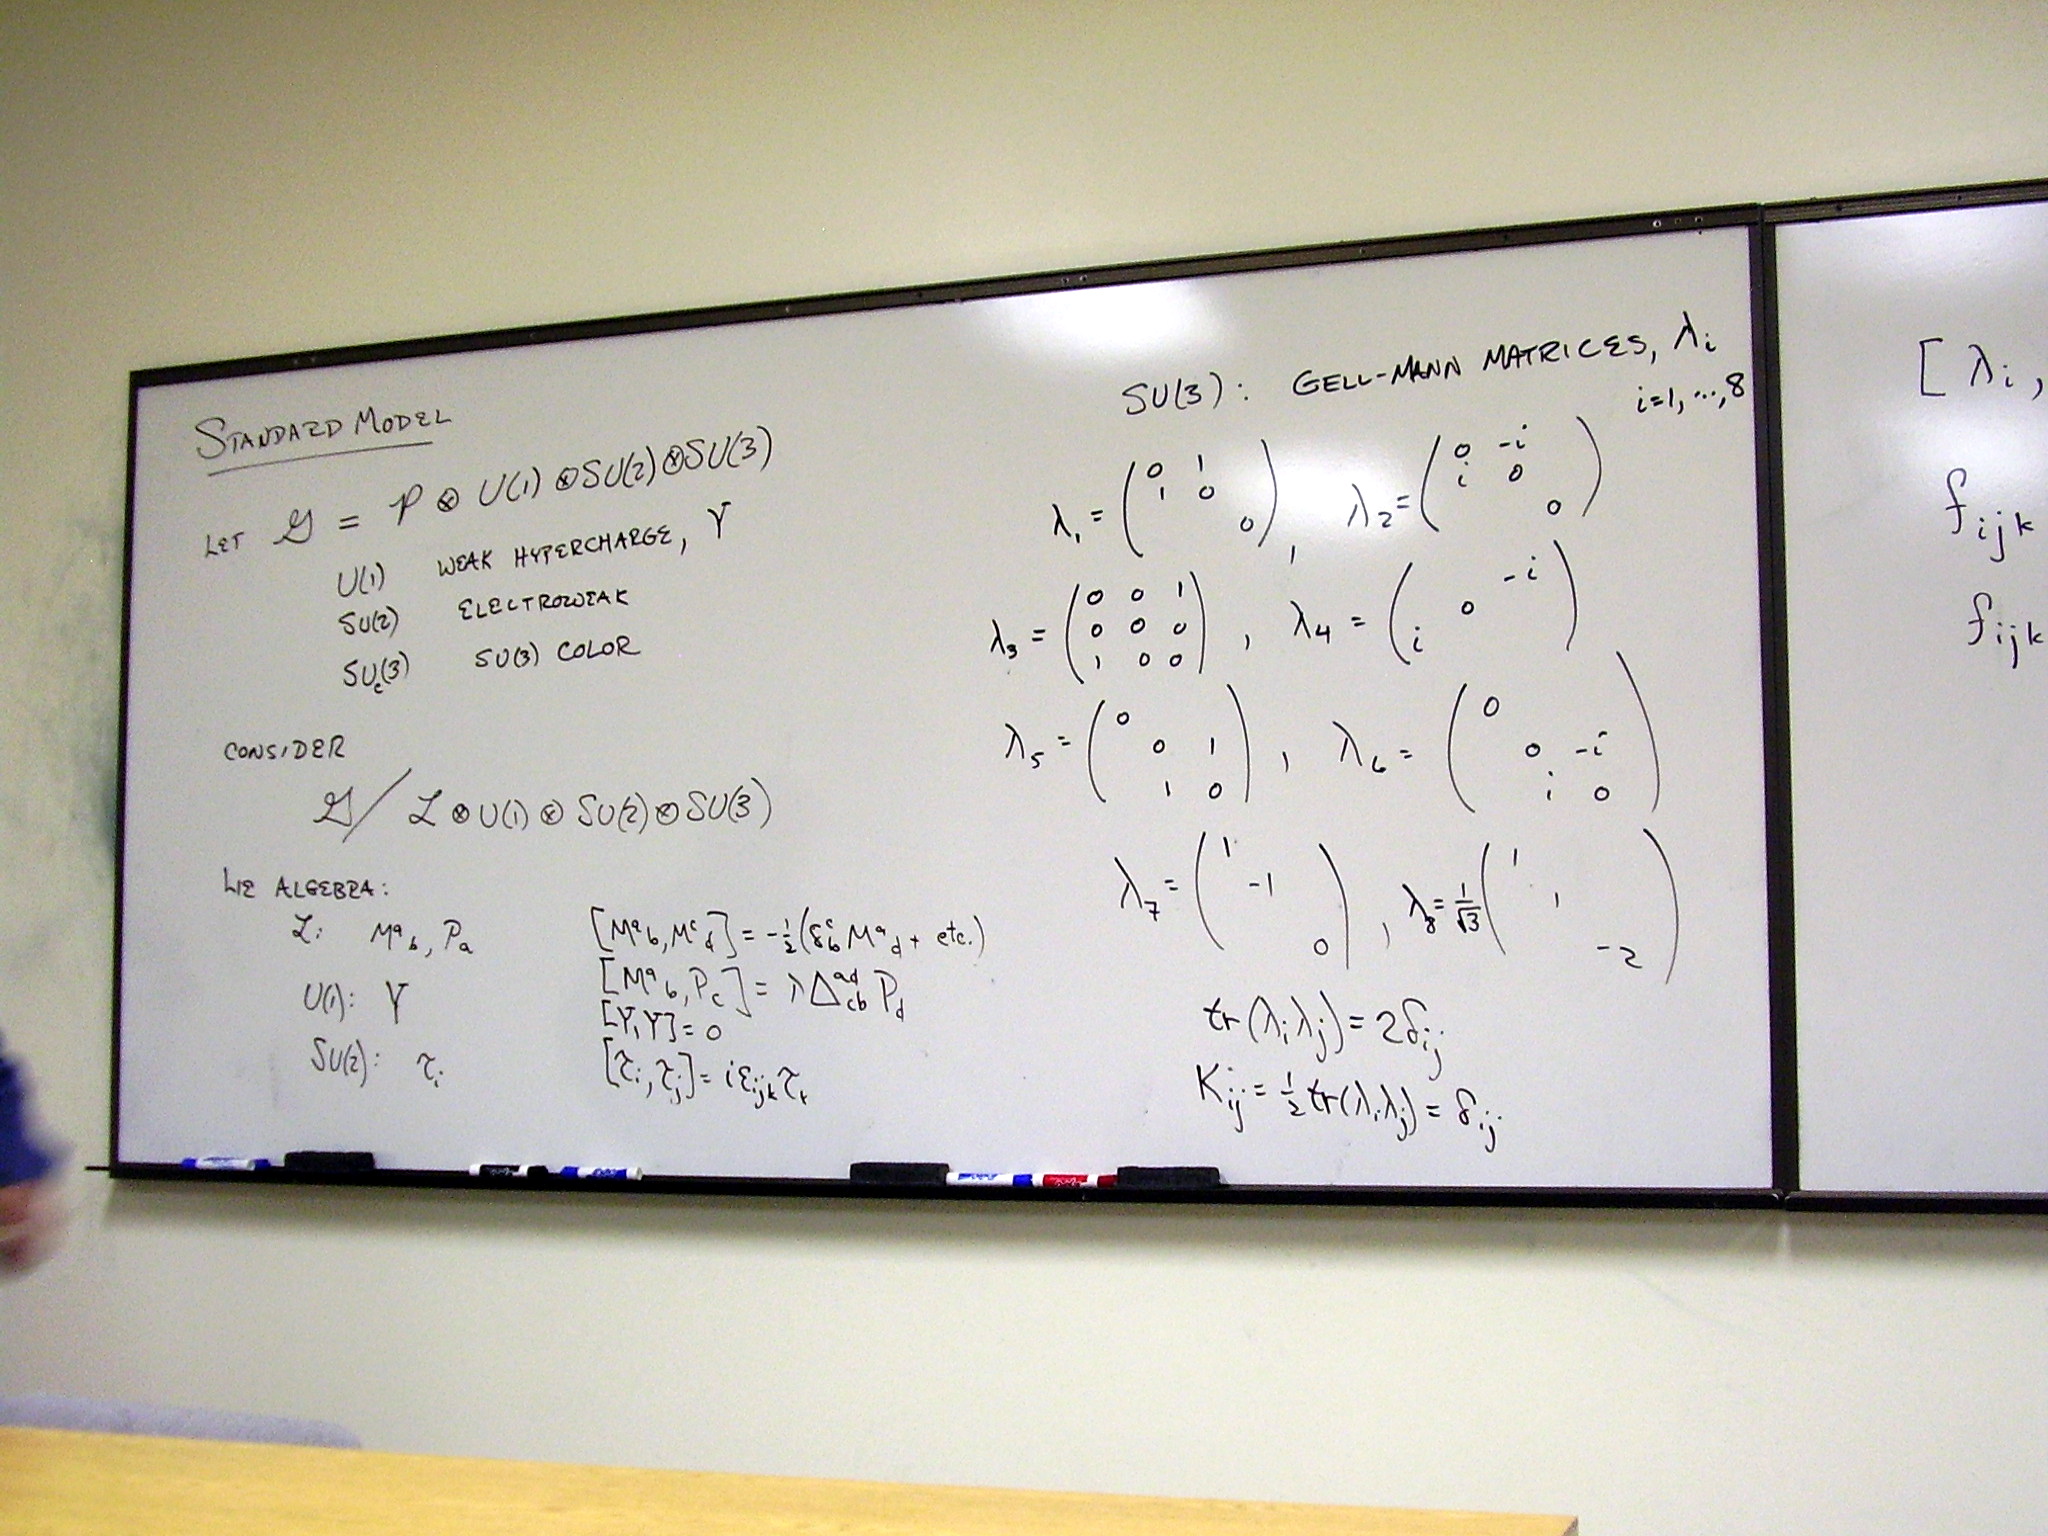 STANDARD MODEL
LET 𝒢 = P ⊗ U(1) ⊗ SU(2) ⊗ SU(3)
U(1) WEAK HYPERCHARGE, Y
SU(2) ELECTROWEAK
SU_c(3) SU(3) COLOR
CONSIDER
𝒢 / ℒ ⊗ U(1) ⊗ SU(2) ⊗ SU(3)
LIE ALGEBRA:
ℒ: M^a_b, P_a [M^a_b, M^c_d] = -1/2 (δ^c_b M^a_d + etc.)
[M^a_b, P_c] = λ Δ^{ad}_{cb} P_d
U(1): Y [Y, Y] = 0
SU(2): τ_i [τ_i, τ_j] = i ε_{ijk} τ_k
SU(3): GELL-MANN MATRICES, λ_i
i=1, ..., 8
λ_1 = (0 1 / 1 0 / 0), λ_2 = (0 -i / i 0 / 0)
λ_3 = (0 0 1 / 0 0 0 / 1 0 0), λ_4 = (-i / 0 / i)
λ_5 = (0 / 0 1 / 1 0), λ_6 = (0 / 0 -i / i 0)
λ_7 = (1 / -1 / 0), λ_8 = 1/√3 (1 / 1 / -2)
tr(λ_i λ_j) = 2δ_{ij}
K_{ij} = 1/2 tr(λ_i λ_j) = δ_{ij}
[λ_i,
f_{ijk}
f_{ijk}